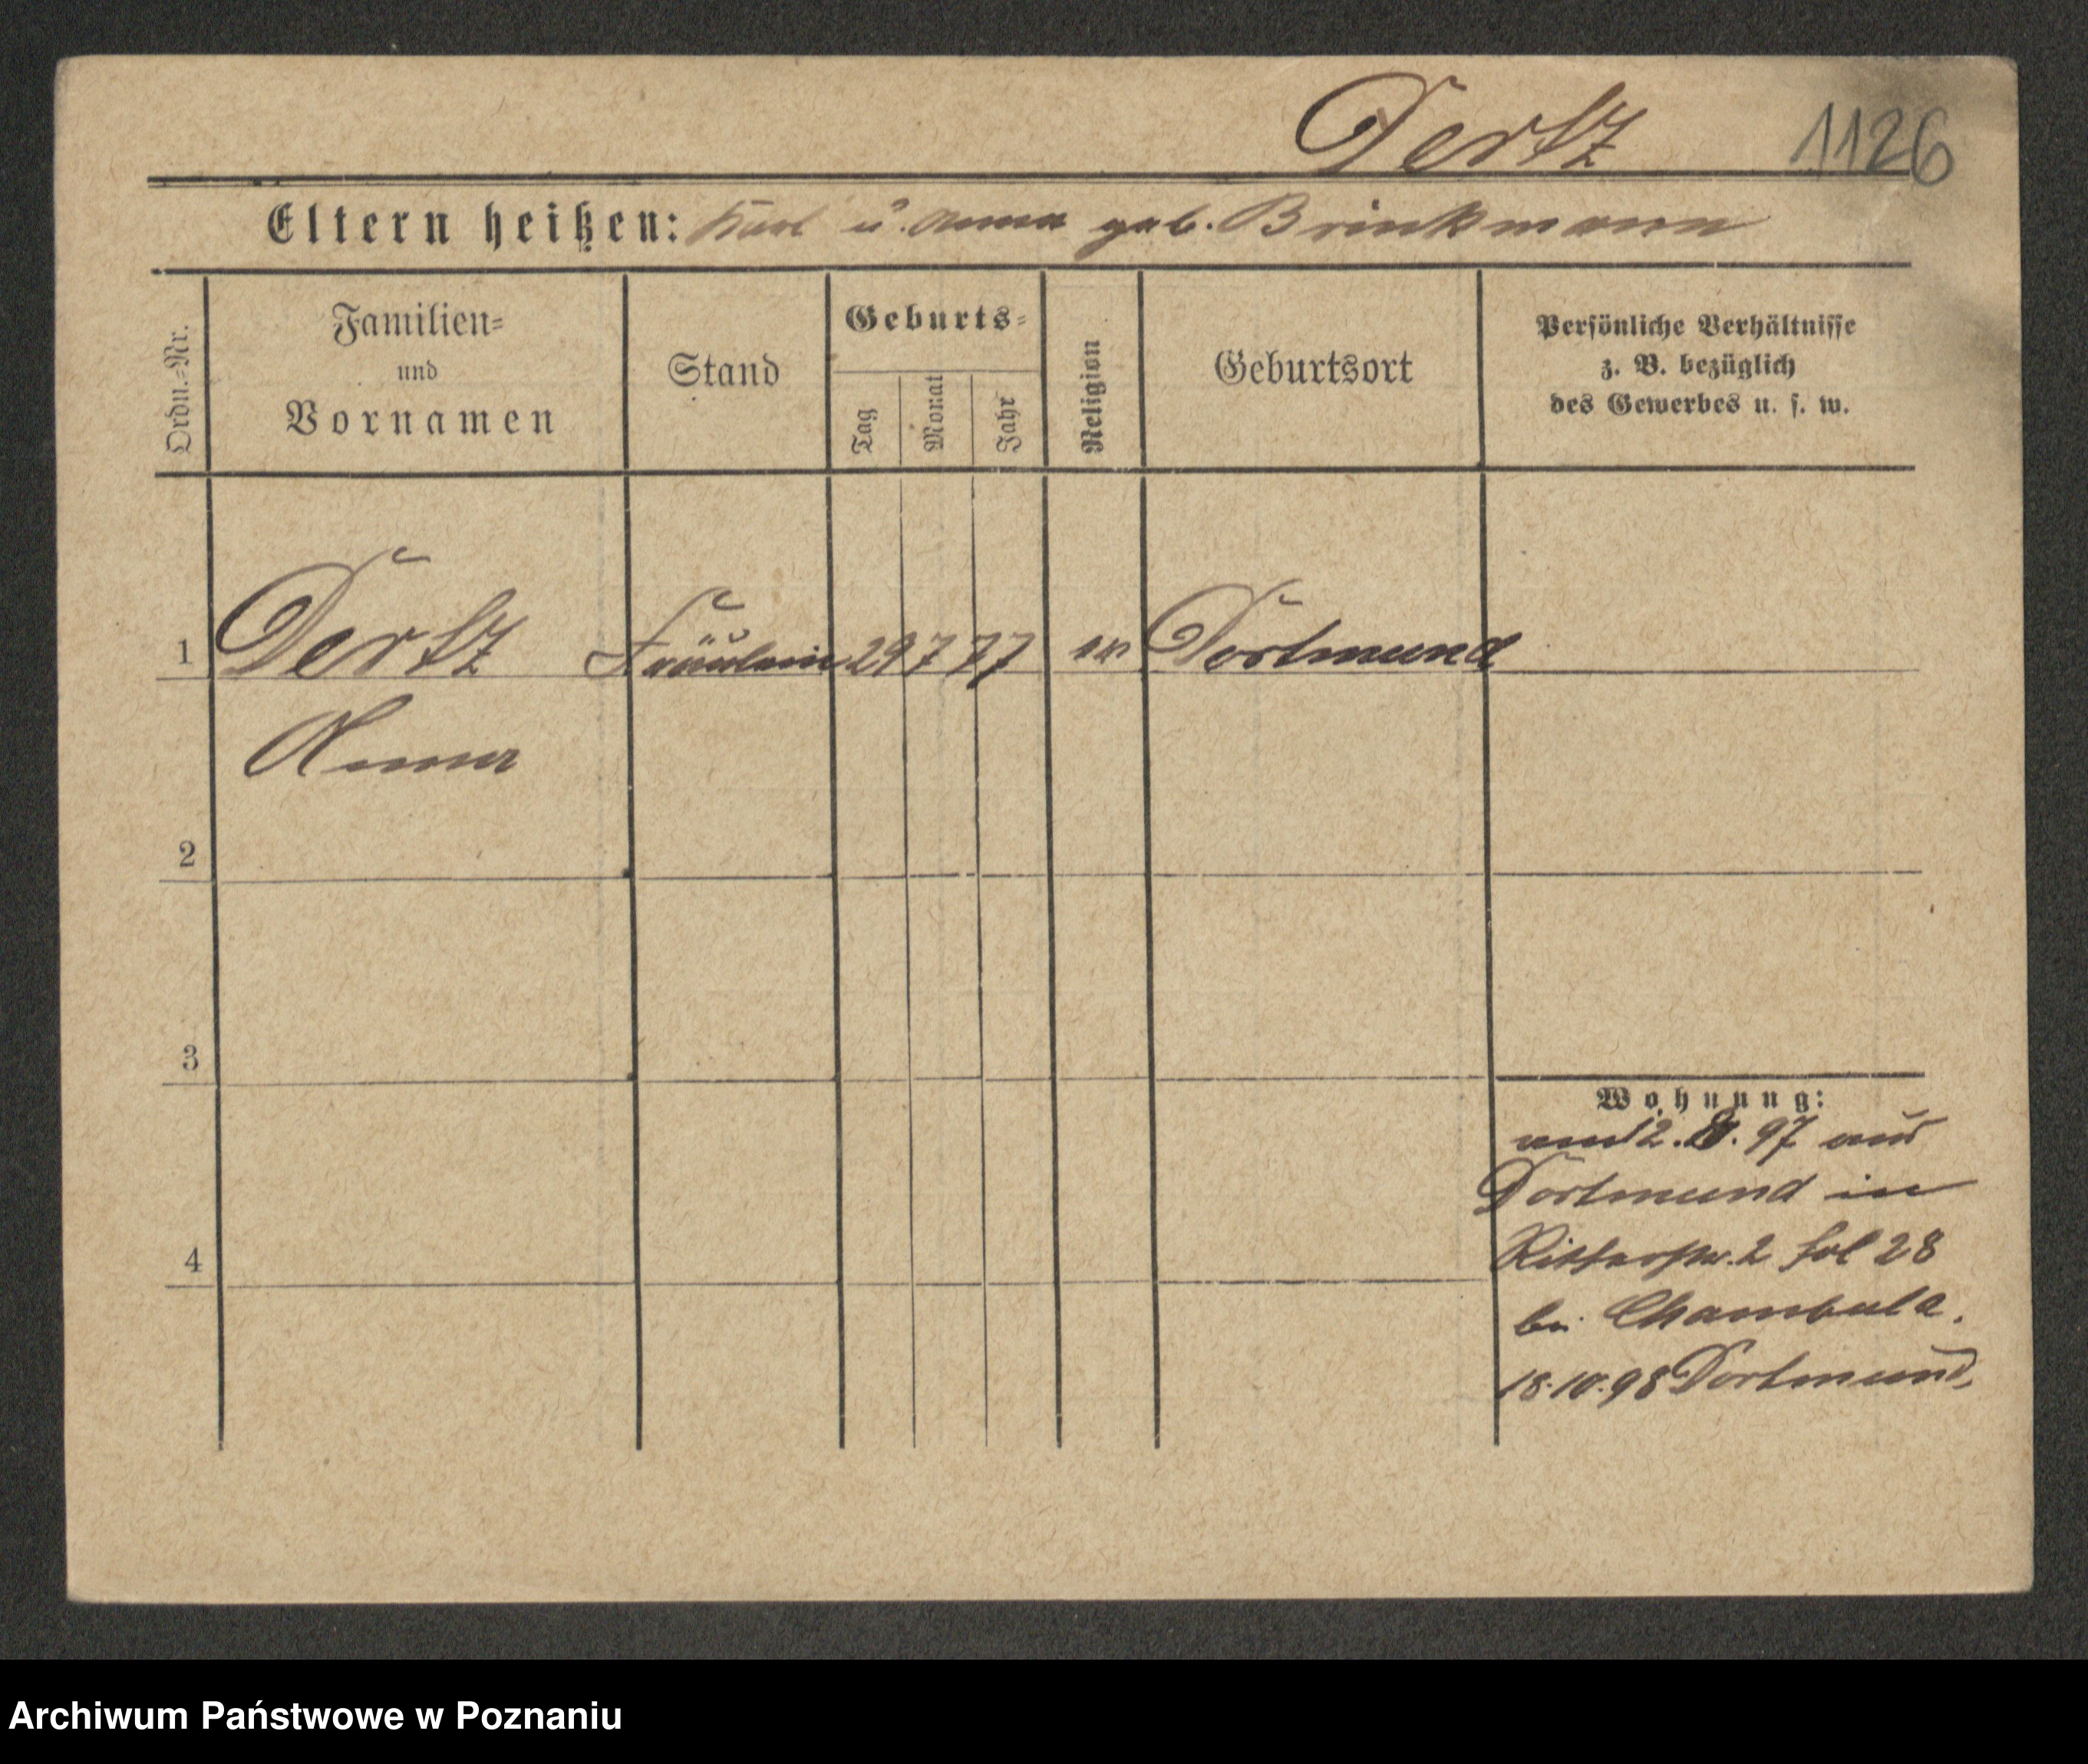 Dertz 1126
Eltern heißen: Karl u. Anna geb. Brinkmann
Ordn.=Nr.
Familien=
und
Vornamen
Stand
Geburts=
Tag
Monat
Jahr
Religion
Geburtsort
Persönliche Verhältnisse
z. B. bezüglich
des Gewerbes u. s. w.
1 Dertz Fräulein 29 7 77 ev Dortmund
Anna
2
3
4
Wohnung:
am 12. 97 aus
Dortmund in
Ritterstr. 2 fol 28
bei
18.10.98 Dortmund,
Archiwum Państwowe w Poznaniu